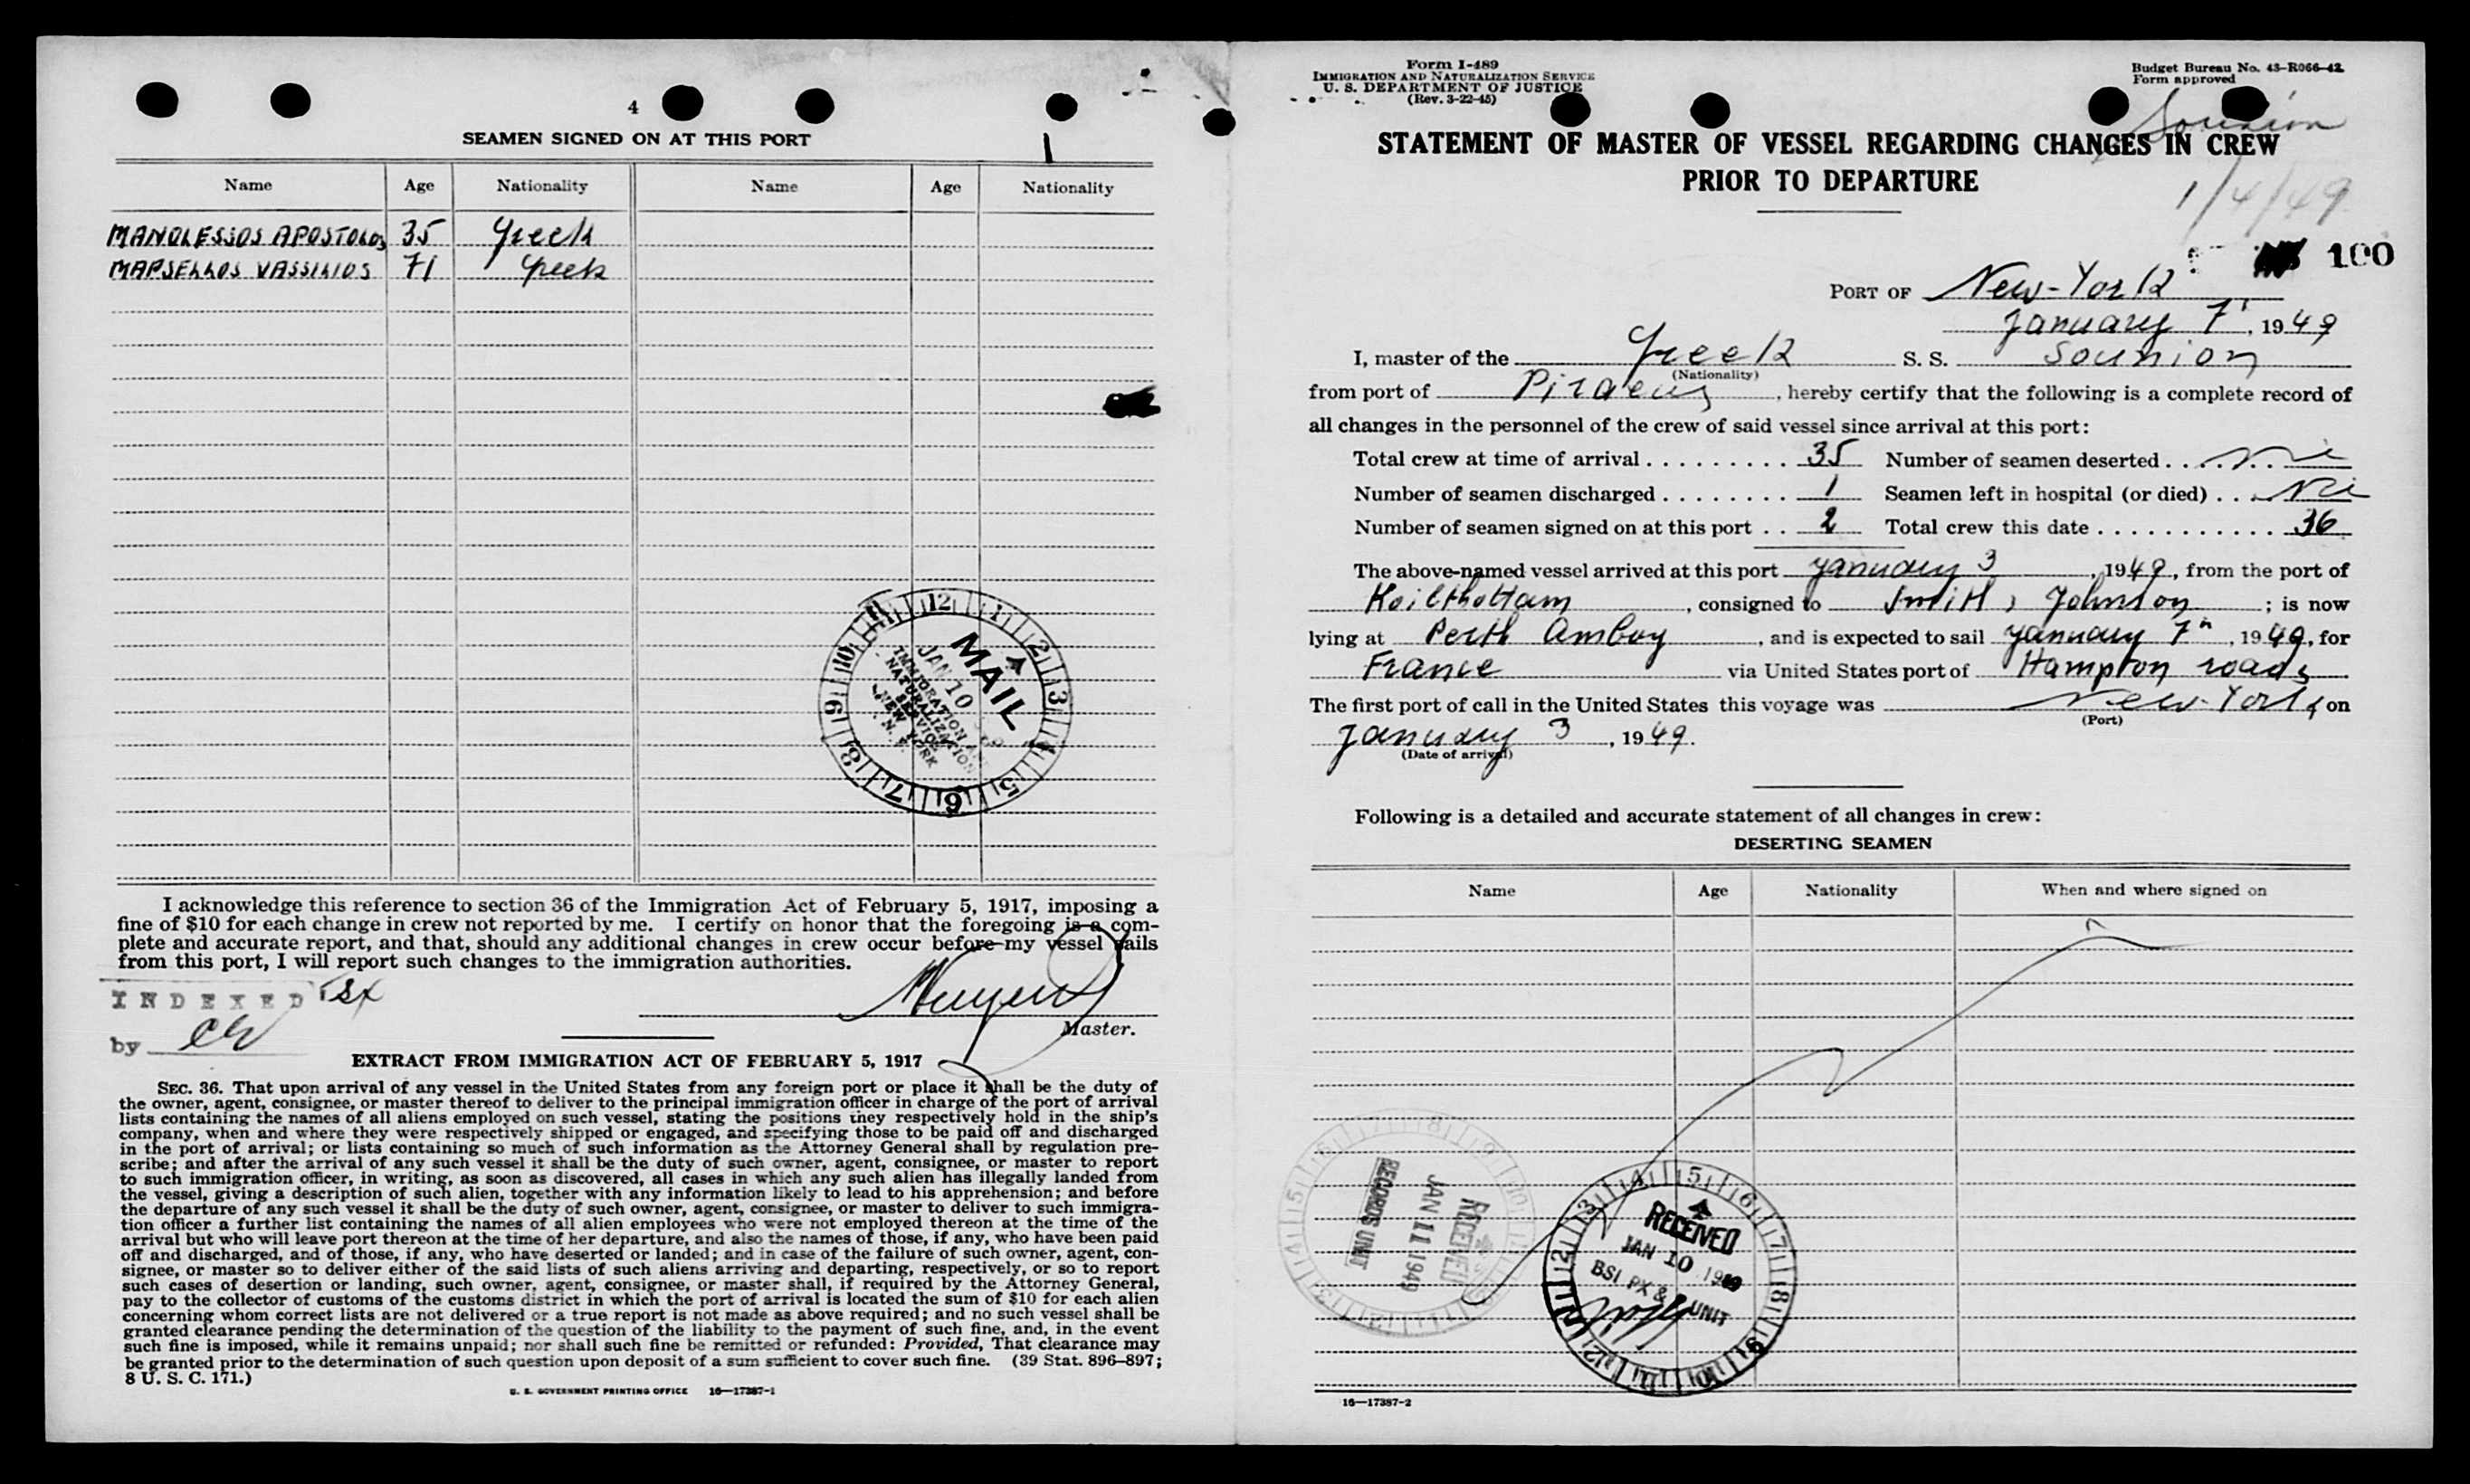 4
SEAMEN SIGNED ON AT THIS PORT
Name Age Nationality Name Age Nationality
MANOLESSOS APOSTOLOS 35 Greek
MAPSELLOS VASSILIOS 71 Greek
12 1 2 3 4 5 6 7 8 9 10 11
MAIL
JAN 10
IMMIGRATION AND
NATURALIZATION
SERVICE
NEW YORK
N. Y.
I acknowledge this reference to section 36 of the Immigration Act of February 5, 1917, imposing a
fine of $10 for each change in crew not reported by me. I certify on honor that the foregoing is a com-
plete and accurate report, and that, should any additional changes in crew occur before my vessel sails
from this port, I will report such changes to the immigration authorities.
INDEXED
by
Master.
EXTRACT FROM IMMIGRATION ACT OF FEBRUARY 5, 1917
SEC. 36. That upon arrival of any vessel in the United States from any foreign port or place it shall be the duty of
the owner, agent, consignee, or master thereof to deliver to the principal immigration officer in charge of the port of arrival
lists containing the names of all aliens employed on such vessel, stating the positions they respectively hold in the ship's
company, when and where they were respectively shipped or engaged, and specifying those to be paid off and discharged
in the port of arrival; or lists containing so much of such information as the Attorney General shall by regulation pre-
scribe; and after the arrival of any such vessel it shall be the duty of such owner, agent, consignee, or master to report
to such immigration officer, in writing, as soon as discovered, all cases in which any such alien has illegally landed from
the vessel, giving a description of such alien, together with any information likely to lead to his apprehension; and before
the departure of any such vessel it shall be the duty of such owner, agent, consignee, or master to deliver to such immigra-
tion officer a further list containing the names of all alien employees who were not employed thereon at the time of the
arrival but who will leave port thereon at the time of her departure, and also the names of those, if any, who have been paid
off and discharged, and of those, if any, who have deserted or landed; and in case of the failure of such owner, agent, con-
signee, or master so to deliver either of the said lists of such aliens arriving and departing, respectively, or so to report
such cases of desertion or landing, such owner, agent, consignee, or master shall, if required by the Attorney General,
pay to the collector of customs of the customs district in which the port of arrival is located the sum of $10 for each alien
concerning whom correct lists are not delivered or a true report is not made as above required; and no such vessel shall be
granted clearance pending the determination of the question of the liability to the payment of such fine, and, in the event
such fine is imposed, while it remains unpaid; nor shall such fine be remitted or refunded: Provided, That clearance may
be granted prior to the determination of such question upon deposit of a sum sufficient to cover such fine. (39 Stat. 896-897;
8 U. S. C. 171.)
U. S. GOVERNMENT PRINTING OFFICE 16—17387-1
Form I-489
IMMIGRATION AND NATURALIZATION SERVICE
U. S. DEPARTMENT OF JUSTICE
(Rev. 3-22-45)
Budget Bureau No. 43-R066-42
Form approved
Sounion
STATEMENT OF MASTER OF VESSEL REGARDING CHANGES IN CREW
PRIOR TO DEPARTURE
1/4/49
100
PORT OF New-York
January 7", 1949
I, master of the Greek S. S. Sounion
(Nationality)
from port of Piraeus, hereby certify that the following is a complete record of
all changes in the personnel of the crew of said vessel since arrival at this port:
Total crew at time of arrival 35 Number of seamen deserted Nil
Number of seamen discharged 1 Seamen left in hospital (or died) Nil
Number of seamen signed on at this port 2 Total crew this date 36
The above-named vessel arrived at this port January 3, 1949, from the port of
Koilthottam, consigned to Smith, Johnson; is now
lying at Perth Amboy, and is expected to sail January 7", 1949, for
France via United States port of Hampton roads
The first port of call in the United States this voyage was New-York, on
(Port)
January 3, 1949.
(Date of arrival)
Following is a detailed and accurate statement of all changes in crew:
DESERTING SEAMEN
Name Age Nationality When and where signed on
RECEIVED
JAN 11 1949
RECORDS UNIT
RECEIVED
JAN 10 1949
BSI PX & UNIT
16—17387-2